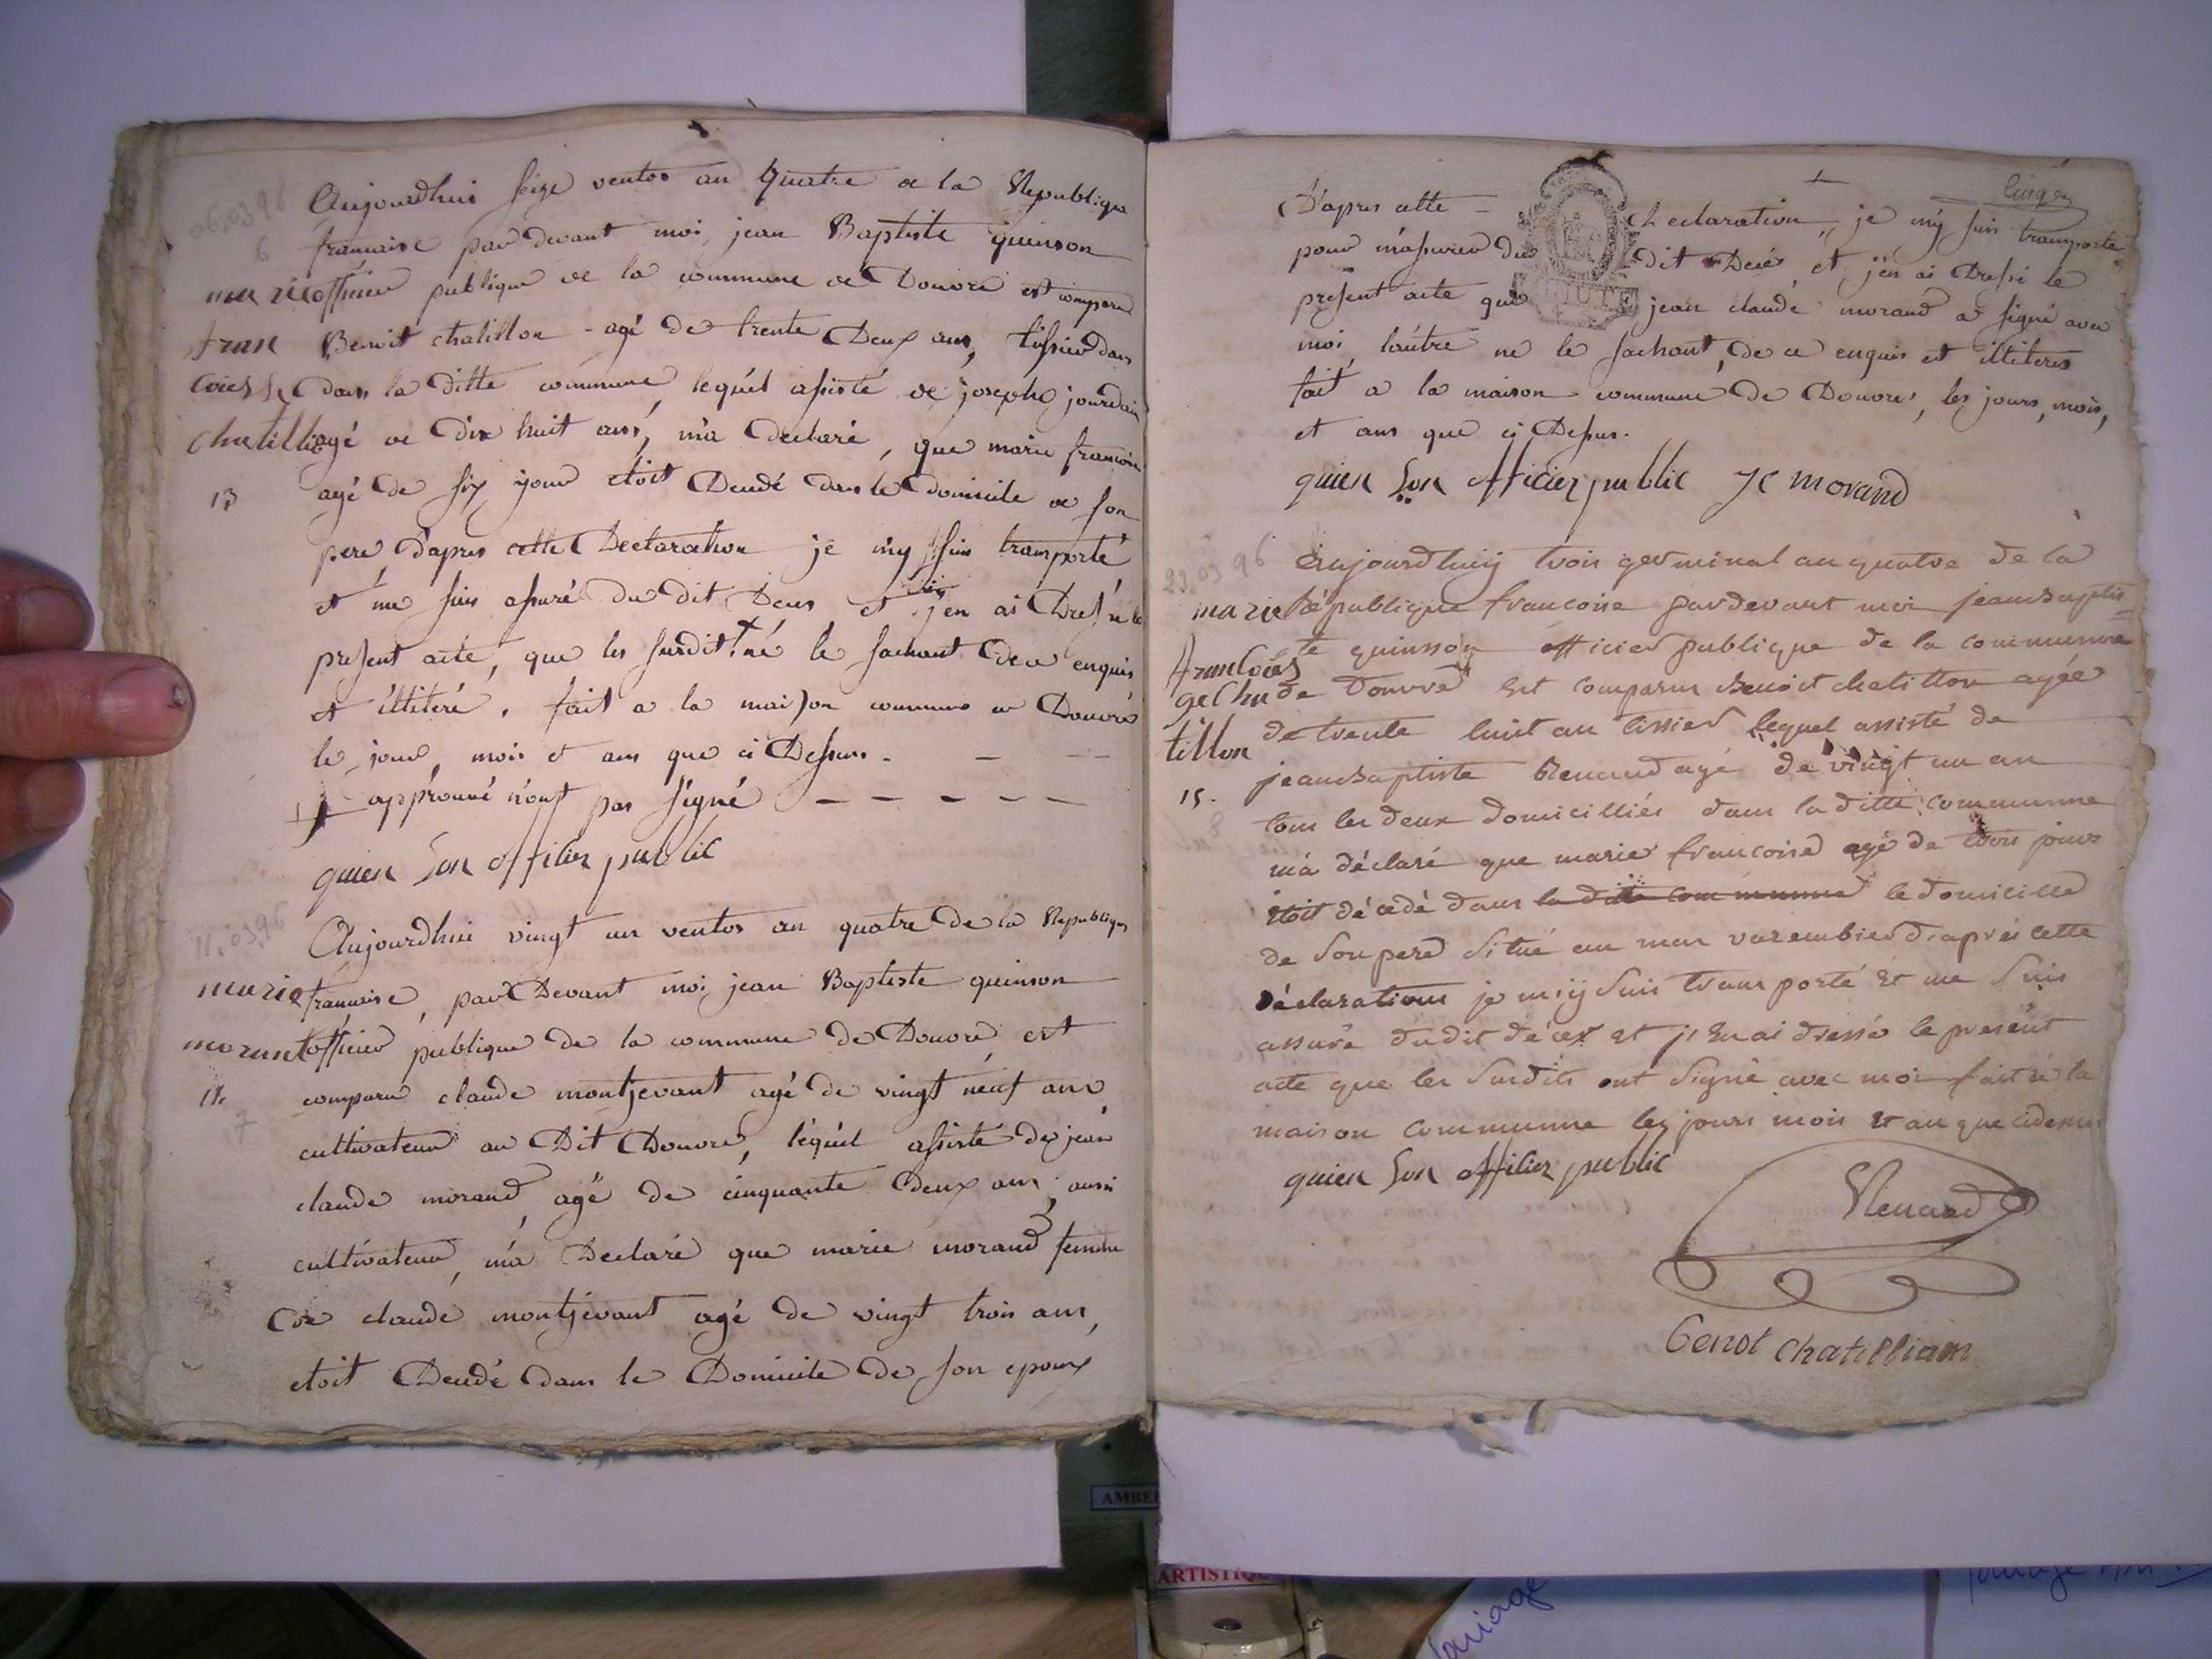 06,03,96
Aujourdhui seize ventos an quatre de la Republique
6
francaise par devant moi, jean Baptiste quinson
marie officier publique de la commune de Douvre est comparu
fran Benoit chatillon - agé de trente Deux ans, tissier dans
coiesse dans la ditte commune, lequel assisté de joseph jourdain
chatillio agé de dix huit ans, m'a declaré, que marie francoise
13 agé de six jour etoit Decedé dans le domicile de son
pere, d'apres cette Declaration je m'y suis transporté
et me suis assuré du dit Deces et j'en ai Dressé le
present acte, que les susdit + né le sachant de ce enquis
et illiteré. fait a la maison commune de Douvre
le jour, mois et ans que ci Dessus. - -
+ approuvé n'ont pas signé - - - - -
quien son officier public
11,03,96
Aujourdhui vingt un ventos an quatre de la Republique
marie francaise, par Devant moi jean Baptiste quinson
morant officier publique de la commune de Douvre, est
14 comparu claude montjevant agé de vingt neuf ans
7
cultivateur au Dit Douvre, lequel assisté de jean
claude morand agé de cinquante Deux ans, aussi
cultivateur, m'a Declaré que marie morand femme
de claude montjevant agé de vingt trois ans,
etoit Decedé dans le Domicile de son epoux
D'apres cette - Declaration, je m'y suis transporté
pour m'assurer du dit Decé et j'en ai Dressé le
present acte que jean claude morand a signé avec
moi, l'autre ne le sachant, de ce enquis et illiteres
fait a la maison commune de Douvre, les jours, mois,
et ans que ci Dessus.
quien Son officier public JC morand
23,03 96
aujourdhuij trois germinal an quatre de la
marie République francoise pardevant moi jean baptis=
te quinson officier publique de la communne
francois
ge Cha de Douvre est comparu benoit chatillon agée
de trente huit an tissier lequel assisté de
tillon
jean baptiste Renaud agé de vingt un an
15.
8
tous les deux domicilliés dans la ditte communne
m'a déclaré que marie francoise agé de trois jours
étoit décedé dans la ditte communne le domicille
de son pere situé au mas varembier d'aprés cette
déclarations je m'ij suis transporté et me suis
assuré dudit déces et j'en ai dressé le present
acte que les susdits ont signé avec moi fait à la
maison communne les jours mois et an que cidessus
quien Son officier public
Renaud
Benot chatilliam